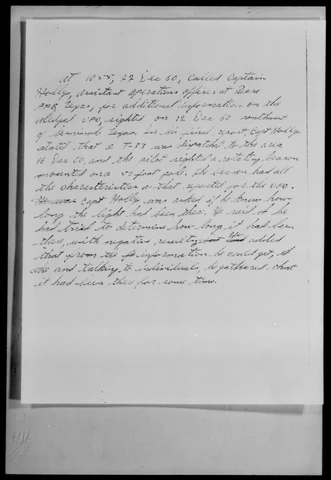 At 1055, 27 Dec 60, called Captain
Holly, assistant operations officer at Reese
AFB, Texas, for additional information on the
alleged UFO, sighted on 12 Dec 60 southwest
of Texas. In his first report Capt Holly
stated that a T-33 was dispatched to the area
16 Dec 60, and the pilot sighted a rotating beacon
mounted on a 50 foot pole. The beacon had all
the characteristics as that reported for the UFO.
Capt Holly was asked if he knew how
long the light had been there. He said if he
had tried to determine how long it had been
there, with negative results, He added
that from the information he could get, at
and talking to individuals, he gathered that
it had been there for some time.